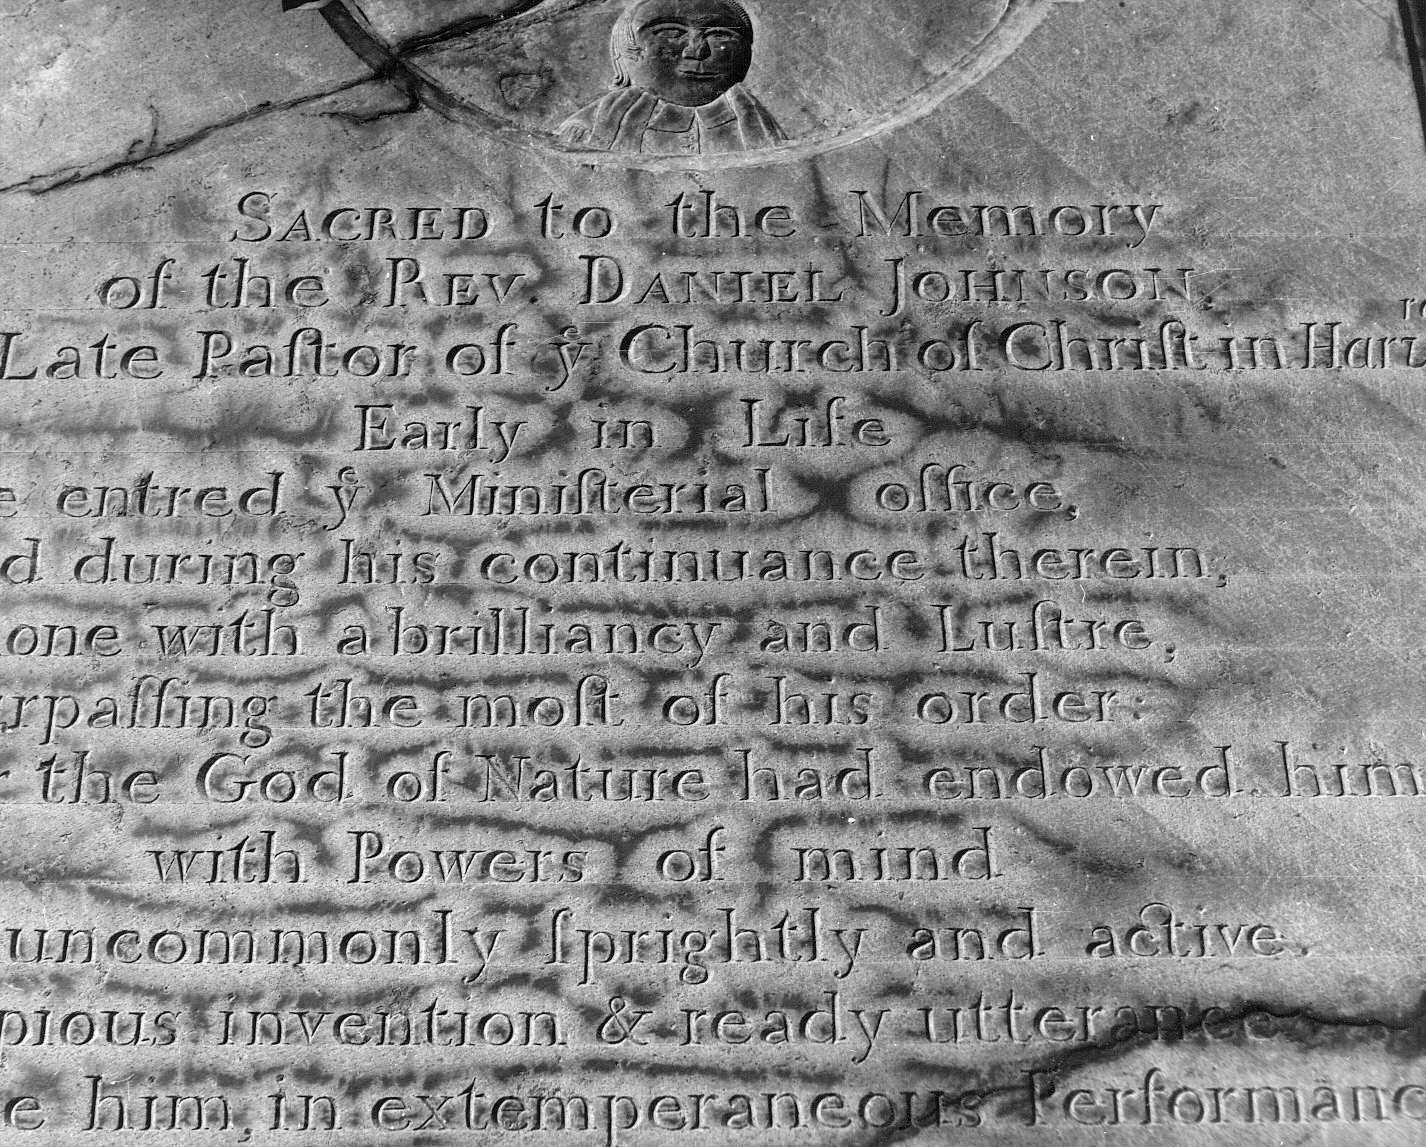 SACRED to the Memory
of the REV. DANIEL JOHNSON.
Late Paſtor of yͤ Church of Chriſt-in Har
Early in Life
entred yͤ Miniſterial office,
during his continuance therein,
with a brilliancy and Luſtre,
the moſt of his order:
the God of Nature had endowed him
with Powers of mind
uncommonly ſprightly and active.
invention & ready utterance
him, in extemperaneous Performanc